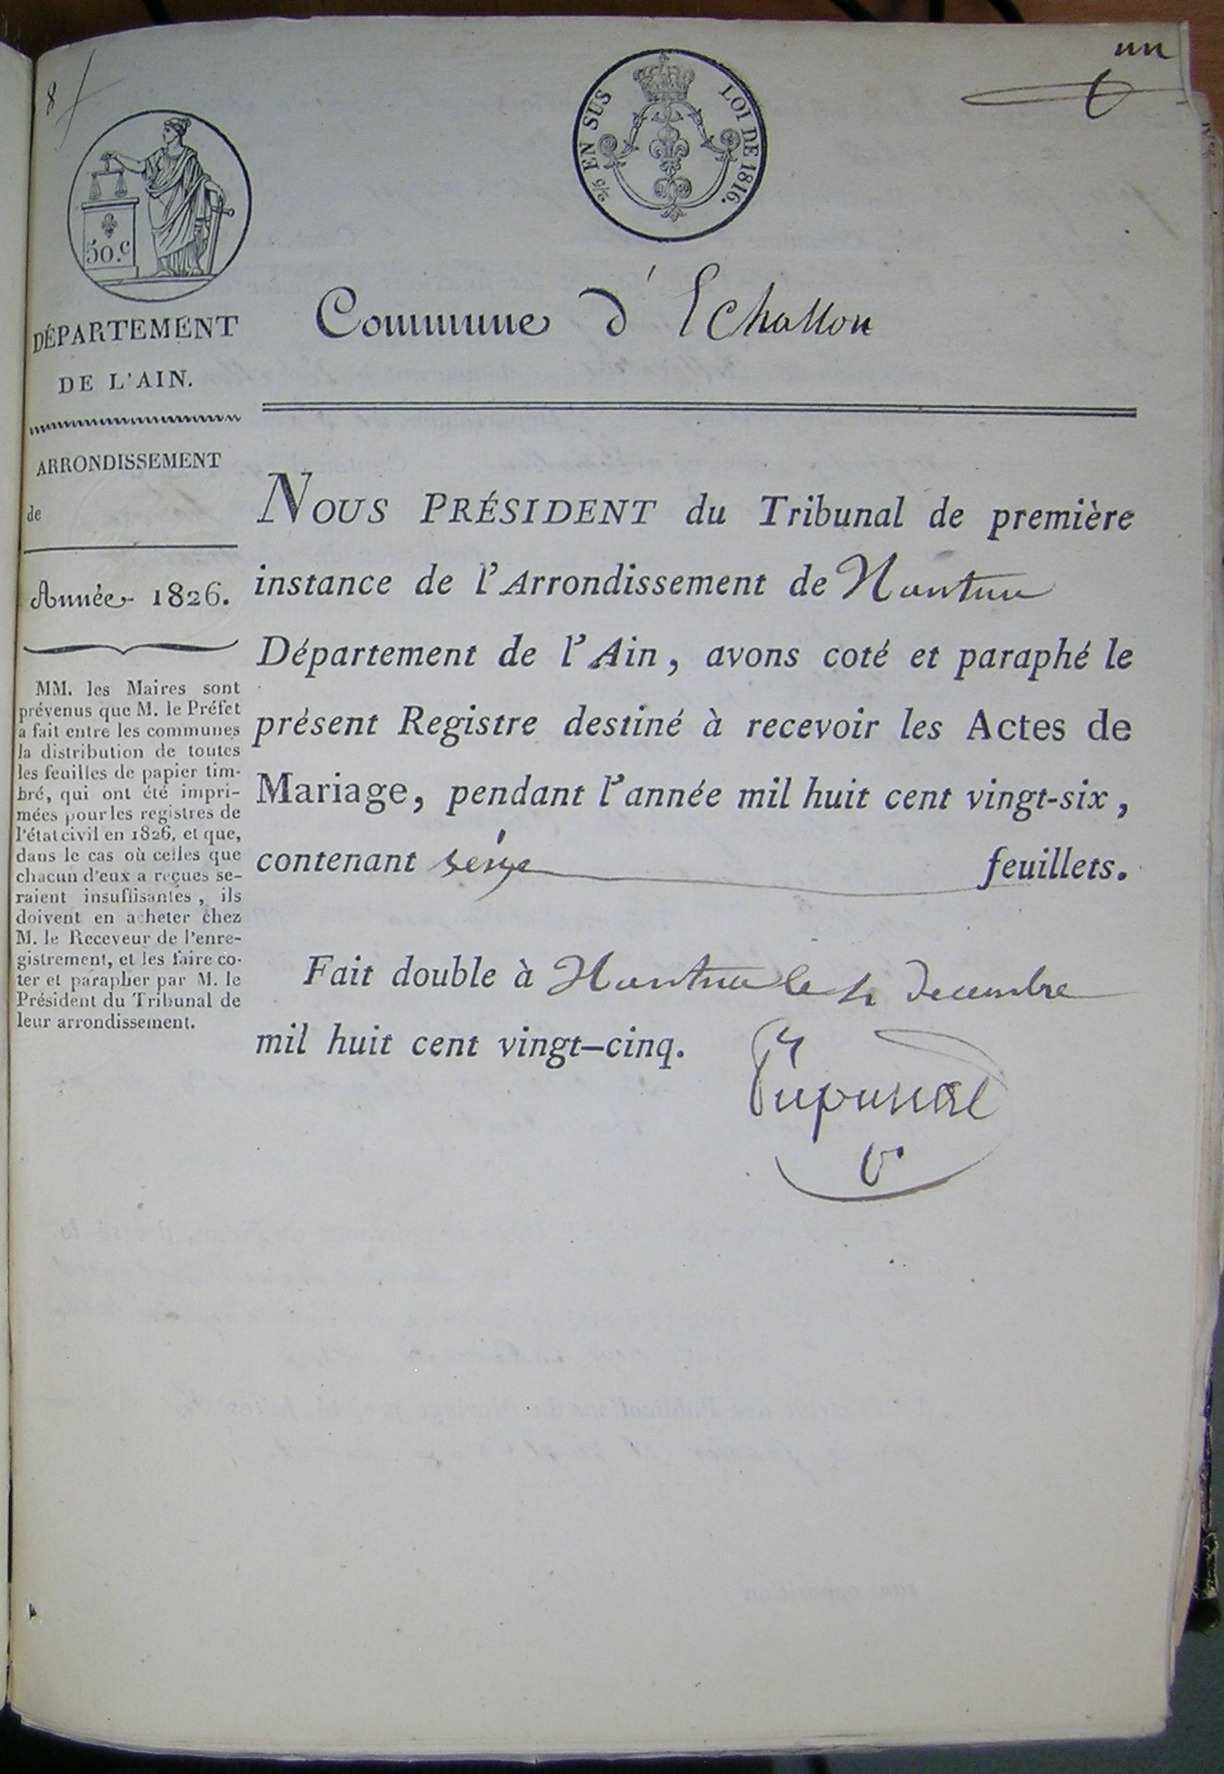 un
8
EN SUS LOI DE 1816.
50.c
DÉPARTEMENT
DE L'AIN.
Commune d' Echallon
ARRONDISSEMENT
de
Année 1826.
MM. les Maires sont
prévenus que M. le Préfet
a fait entre les communes
la distribution de toutes
les feuilles de papier tim-
bré, qui ont été impri-
mées pour les registres de
l'état civil en 1826, et que,
dans le cas où celles que
chacun d'eux a reçues se-
raient insuffisantes, ils
doivent en acheter chez
M. le Receveur de l'enre-
gistrement, et les faire co-
ter et parapher par M. le
Président du Tribunal de
leur arrondissement.
NOUS PRÉSIDENT du Tribunal de première
instance de l'Arrondissement de Nantua
Département de l'Ain, avons coté et paraphé le
présent Registre destiné à recevoir les Actes de
Mariage, pendant l'année mil huit cent vingt-six,
contenant seize feuillets.
Fait double à Nantua le decembre
mil huit cent vingt-cinq.